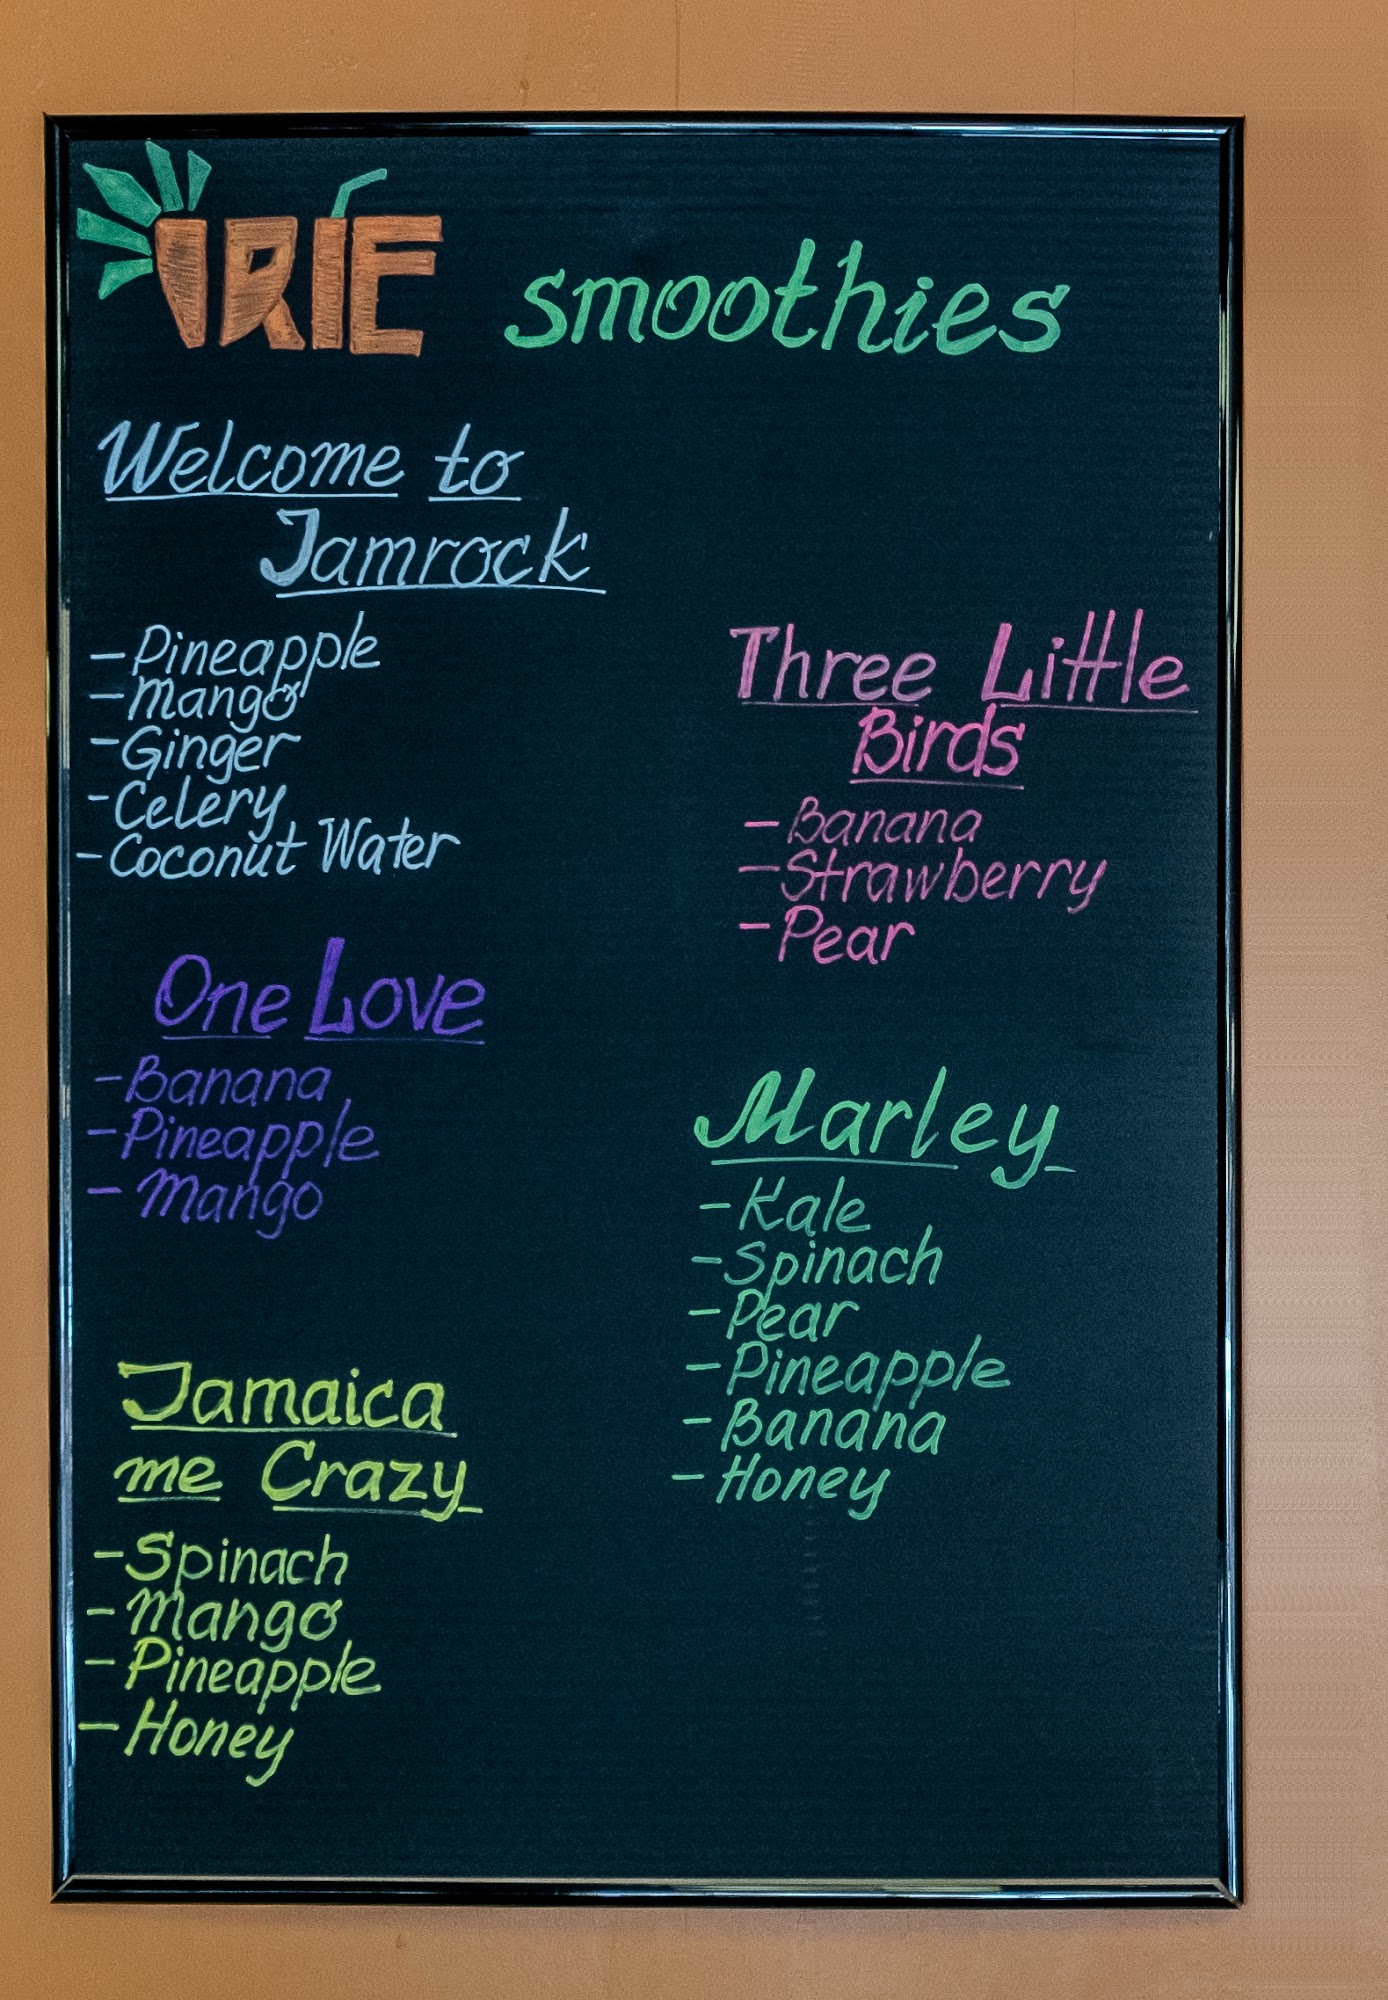 IRIE smoothies
Welcome to
Jamrock
-Pineapple
-Mango
-Ginger
-Celery
-Coconut Water
One Love
-Banana
-Pineapple
-Mango
Jamaica
me Crazy
-Spinach
-Mango
-Pineapple
-Honey
Three Little
Birds
-Banana
-Strawberry
-Pear
Marley
-Kale
-Spinach
-Pear
-Pineapple
-Banana
-Honey